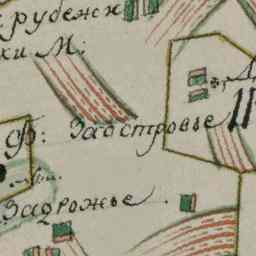 рубежн
ки М:
Ф: Заостровье
Задрожье